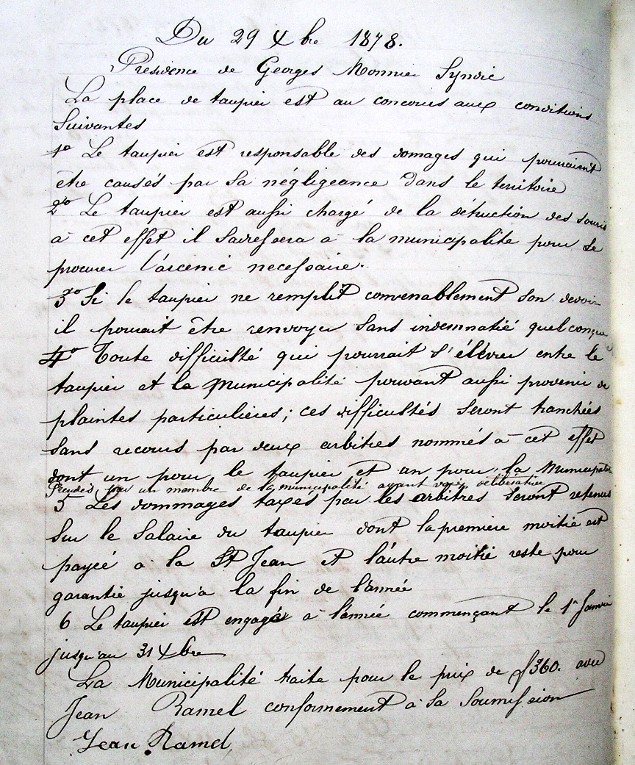 Du 29 Xbre 1878.
Presidence de Georges Monnier Syndic
La place de taupier est au concours aux conditions
Suivantes
1º Le taupier est responsable des domages qui pourraient
être causés par sa négligeance dans le territoire
2º Le taupier est aussi chargé de la détruction des souris
à cet effet il sadressera à la municipalité pour se
procurer l'arcenic necessaire.
3º Si le taupier ne remplit convenablement son devoir
il pourait être renvoyer sans indemnatié quelconque
4º Toute difficulté qui pourrait s'élever entre le
taupier et la Municipalité pouvant aussi provenir de
plaintes particulières; ces difficultés seront tranchées
sans recours par deux arbitres nommés à cet effet
dont un pour le taupier et un pour la Municipalité
par un membre de la municipalité ayant voix délibérative
5 Les dommages taxés par les arbitres seront retenus
sur le salaire du taupier dont la première moitié est
payée à la St Jean et l'autre moitié reste pour
garantie jusqu'à la fin de l'année
6 Le taupier est engagé à l'année commençant le 1er Janvier
jusqu'au 31 Xbre
La Municipalité traite pour le prix de f360. avec
Jean Ramel conformement à sa soumission
Jean Ramel,